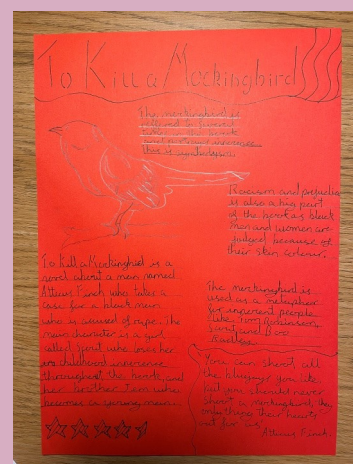 To Kill a Mockingbird
The mockingbird is
Racism and prejudice
is also a big part
of the book as black
men and women are
judged because of
their skin colour.
To Kill a Mockingbird is a
novel about a man named
Atticus Finch who takes a
case for a black man
who is accused of rape. The
main character is a girl
called Scout who loses her
childhood innocence
throughout the book, and
her brother Jem who
becomes a young man.
The mockingbird is
used as a metaphor
for innocent people
like Tom Robinson,
Scout and Boo
Radley.
You can shoot all
the bluejays you like,
but you should never
shoot a mockingbird, they
only things their hearts
out for us
Atticus Finch.